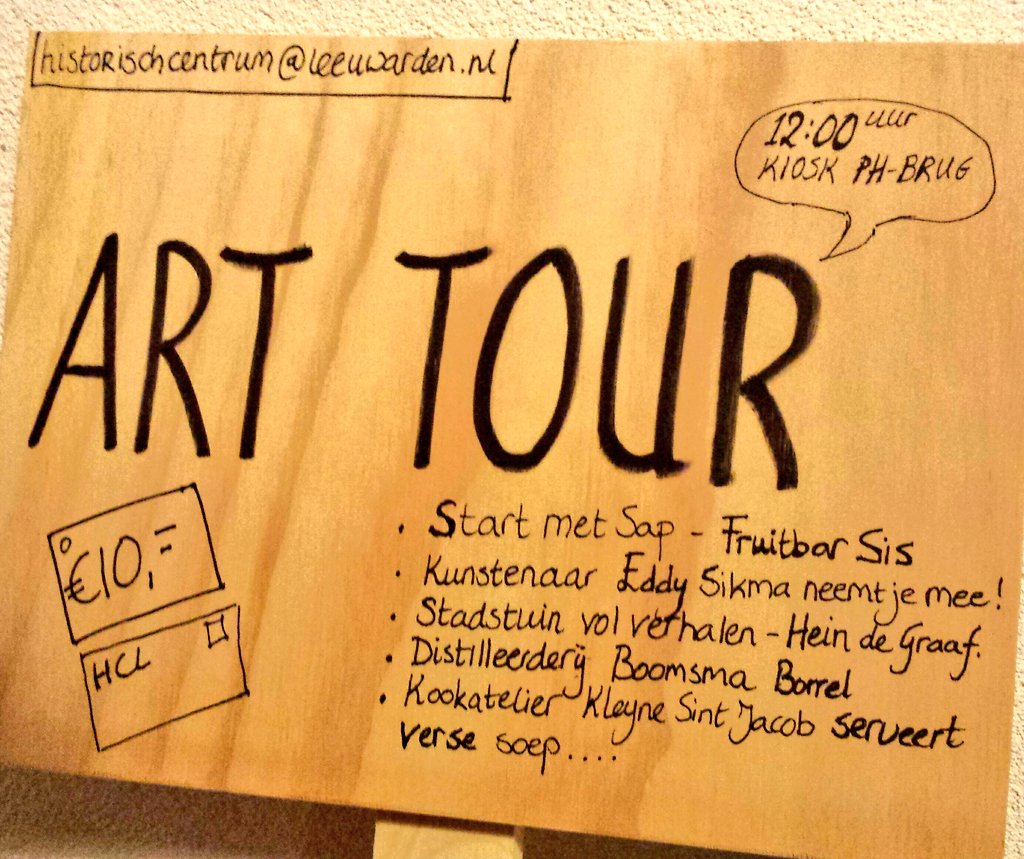 historischcentrum@leeuwarden.nl
12:00 uur
KIOSK PH-BRUG
ART TOUR
€10,-
HCL
• Start met Sap - Fruitbar Sis
• Kunstenaar Eddy Sikma neemt je mee!
• Stadstuin vol verhalen - Hein de Graaf.
• Distilleerderij Boomsma Borrel
• Kookatelier Kleyne Sint Jacob serveert
verse soep....